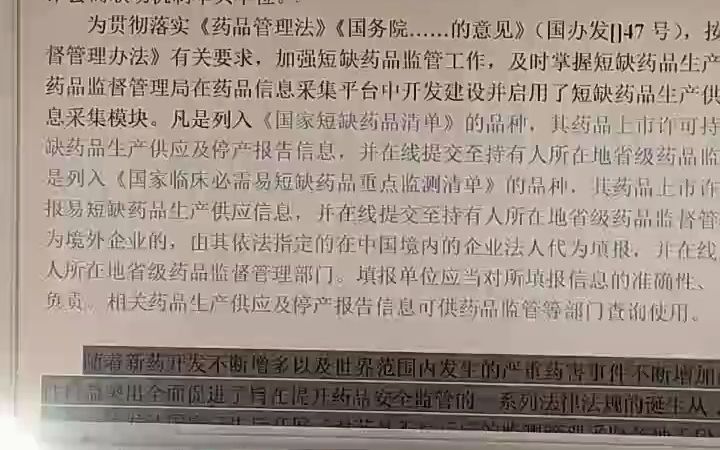 为贯彻落实《药品管理法》《国务院……的意见》（国办发[]47 号），按
督管理办法》有关要求，加强短缺药品监管工作，及时掌握短缺药品生产
药品监督管理局在药品信息采集平台中开发建设并启用了短缺药品生产供
息采集模块。凡是列入《国家短缺药品清单》的品种，其药品上市许可持
缺药品生产供应及停产报告信息，并在线提交至持有人所在地省级药品监
是列入《国家临床必需易短缺药品重点监测清单》的品种，其药品上市许
报易短缺药品生产供应信息，并在线提交至持有人所在地省级药品监督管
为境外企业的，由其依法指定的在中国境内的企业法人代为填报，并在线
人所在地省级药品监督管理部门。填报单位应当对所填报信息的准确性、
负责。相关药品生产供应及停产报告信息可供药品监管等部门查询使用。
随着新药开发不断增多以及世界范围内发生的严重药害事件不断增加
全面促进了旨在提升药品安全监管的一系列法律法规的诞生从